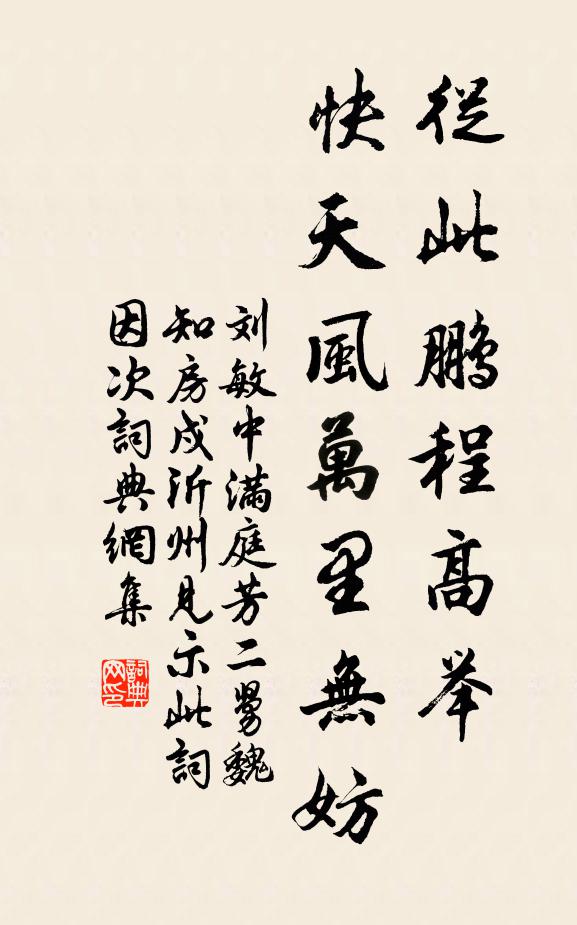 從此鵬程高举
快天風萬里無妨
刘敏中滿庭芳二舅魏
知房戍沂州見示此詞
因次詞典網集
詞典网印